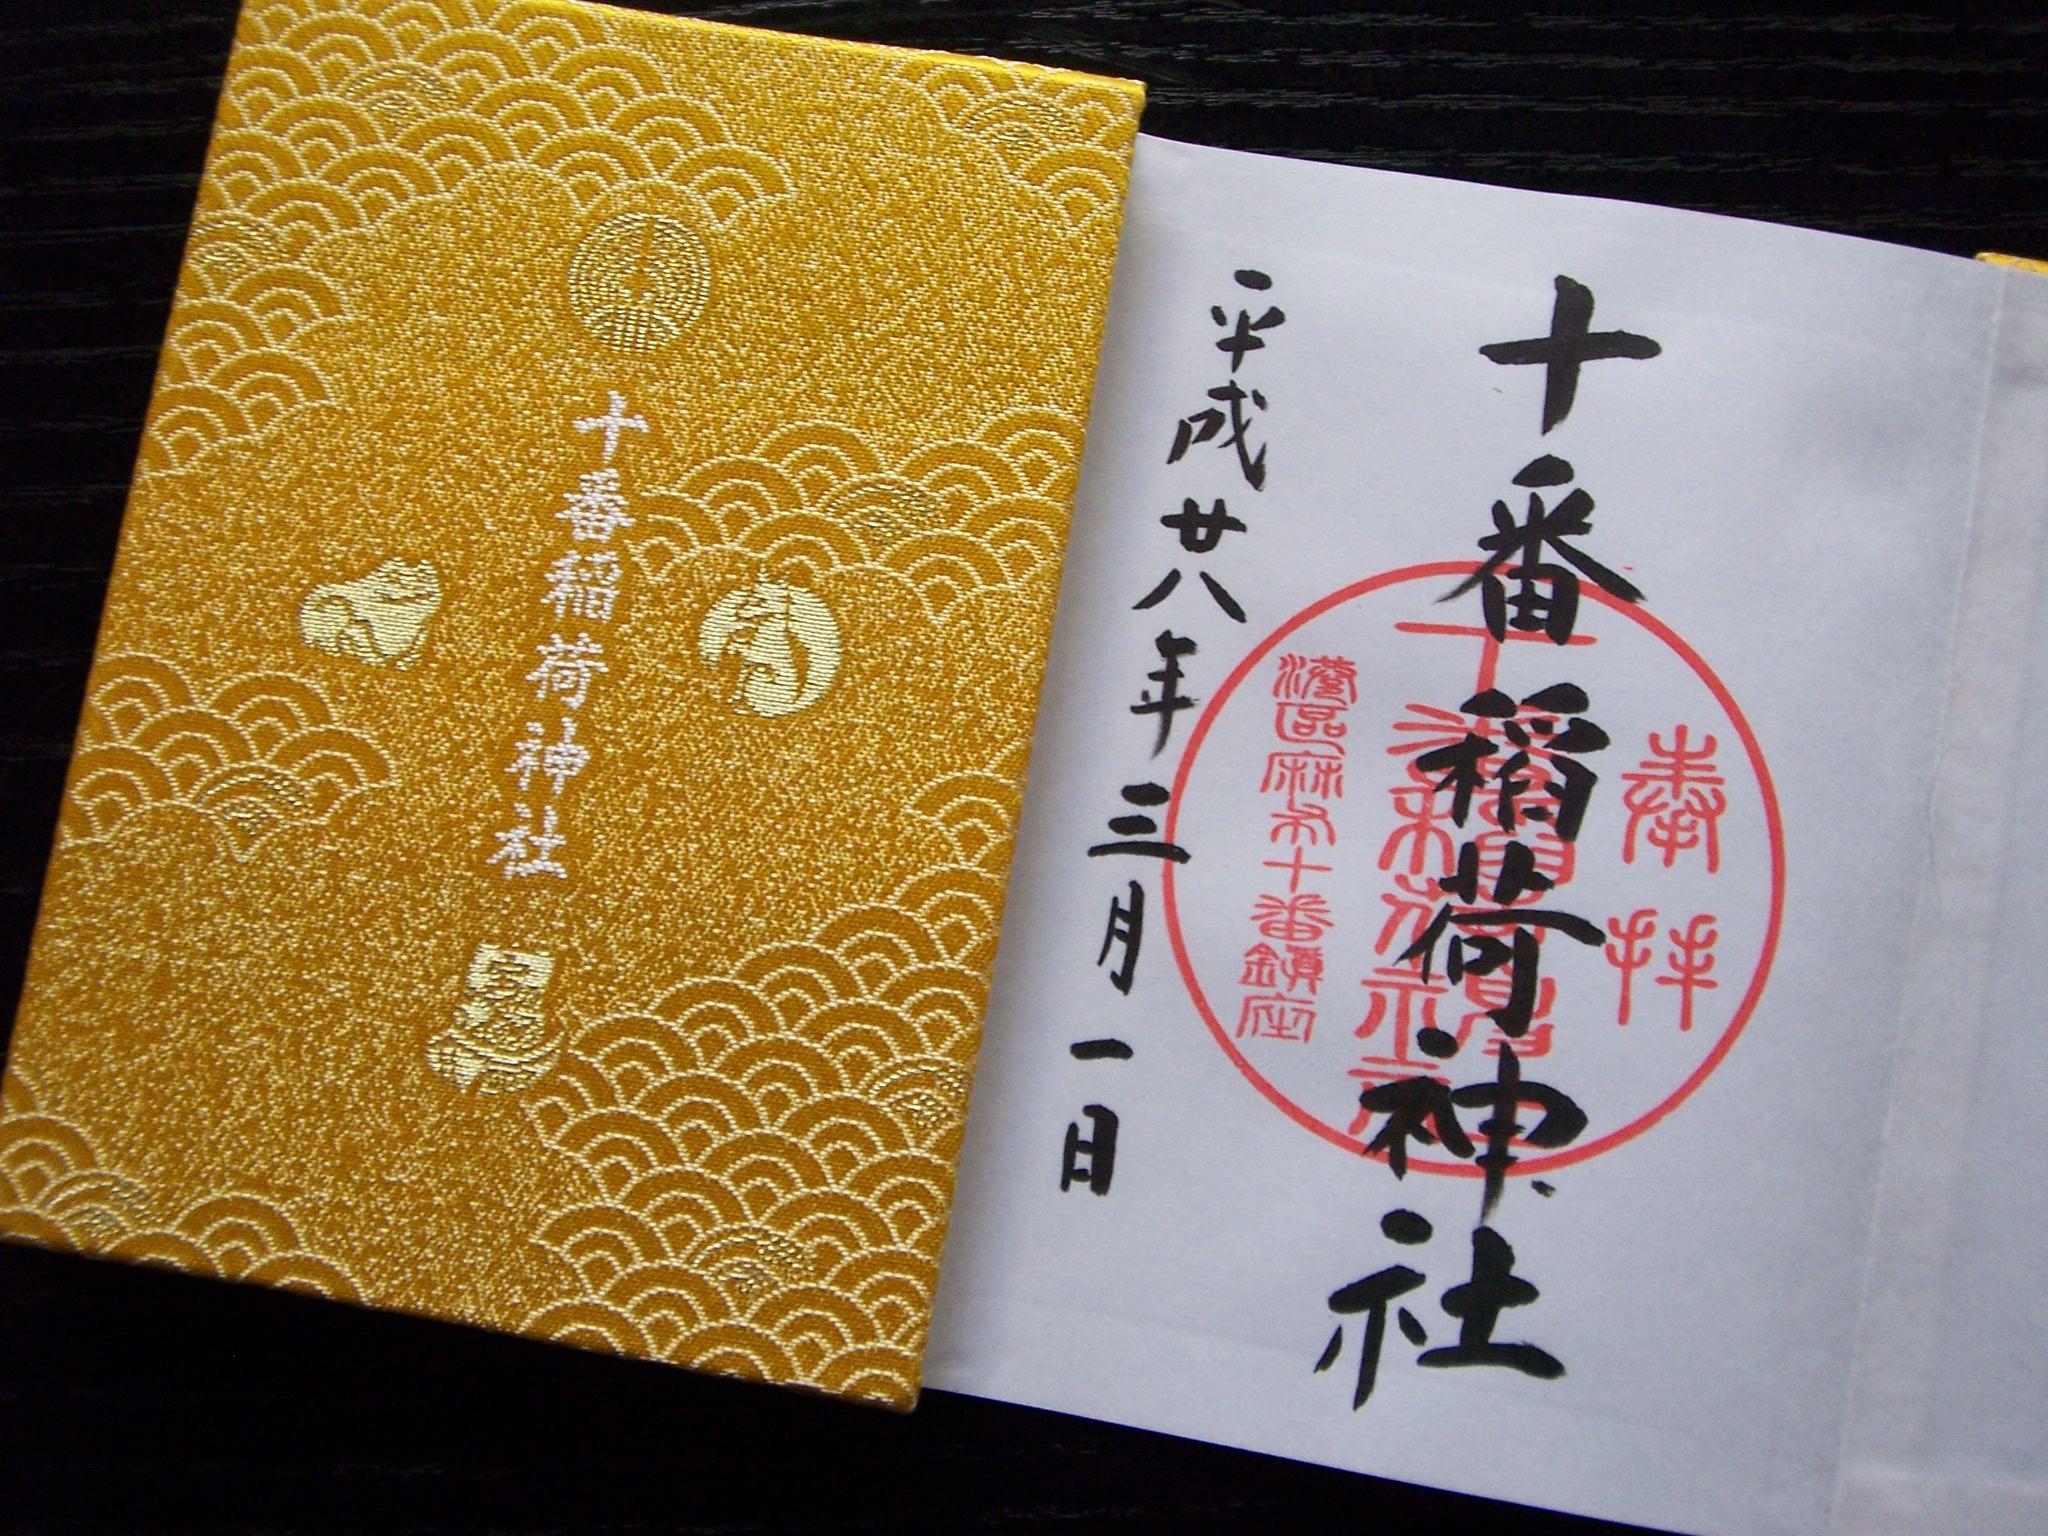 十番稲荷神社
奉拝
十番稲荷神社
港區麻布十番鎮座
平成廿八年三月一日